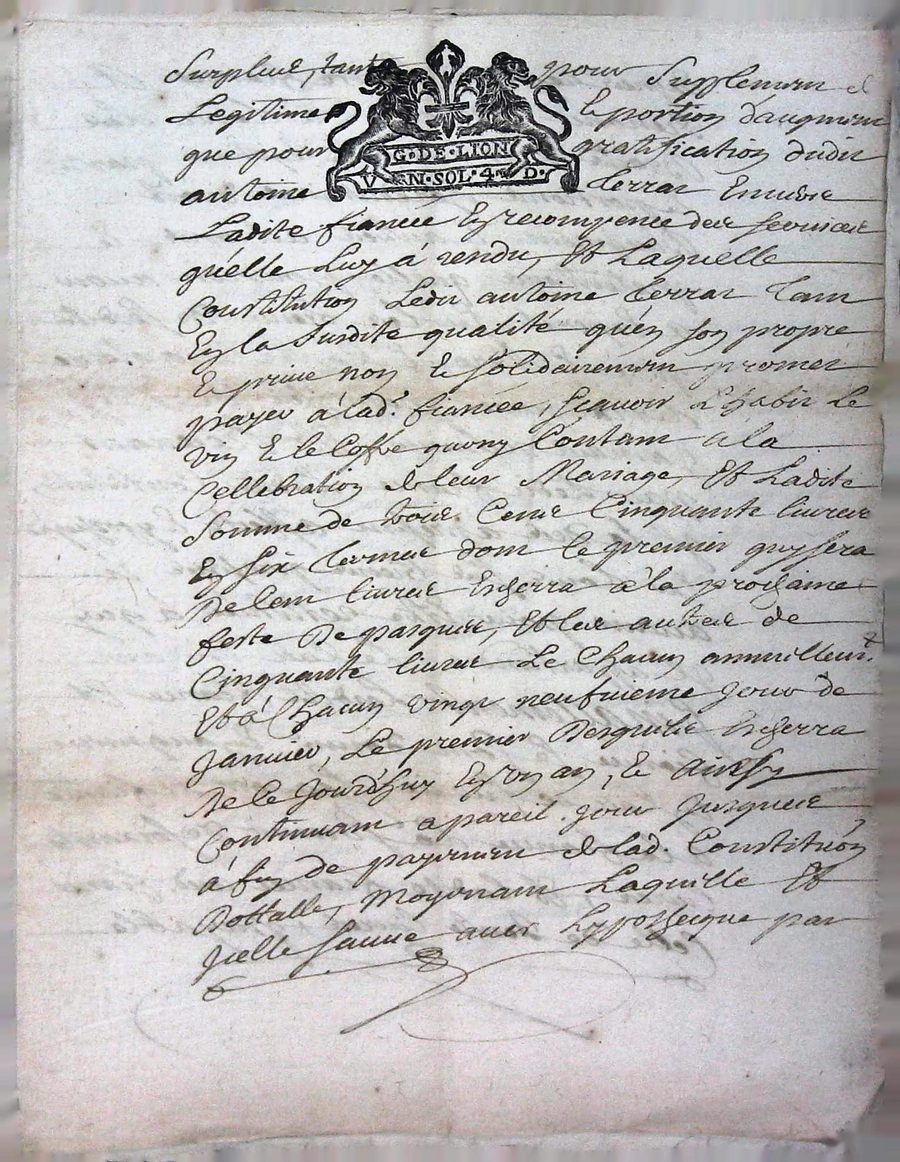 Surplus, tant pour Supplement de
Legitime & portion d'augment
que pour gratification dudit
G·DE·LION
VN·SOL·4·D·
antoine terrat Envers
Ladite fiancée En recompence des services
qu'elle Luy à rendu, Et Laquelle
Constitution Ledit antoine terrat Tant
En la Susdite qualité quén son propre
Et privé nom & solidairement promet
payer à lad.e fiancée, scavoir L'habit Le
vin & le Coffre quony Contant à la
Cellebration de leur Mariage, Et Ladite
Somme de trois Cens Cinquante livres
En six termes dont le premier quy sera
De Cent livres Escherra à la prochaine
feste De pasques, Et les autres de
Cinquante livres Le Chacun annuillemt.
Et à Chacun vingt neufvieme jour de
Janvier, Le premier Desquels Escherra
De Ce Jourdhuy En un an, & ainsy
Continuant a pareil jour Jusques
à fin de payement de lad. Constitution
Dottalle, Moyenant Laquelle Et
Icelle sauve avec hyppotheque par